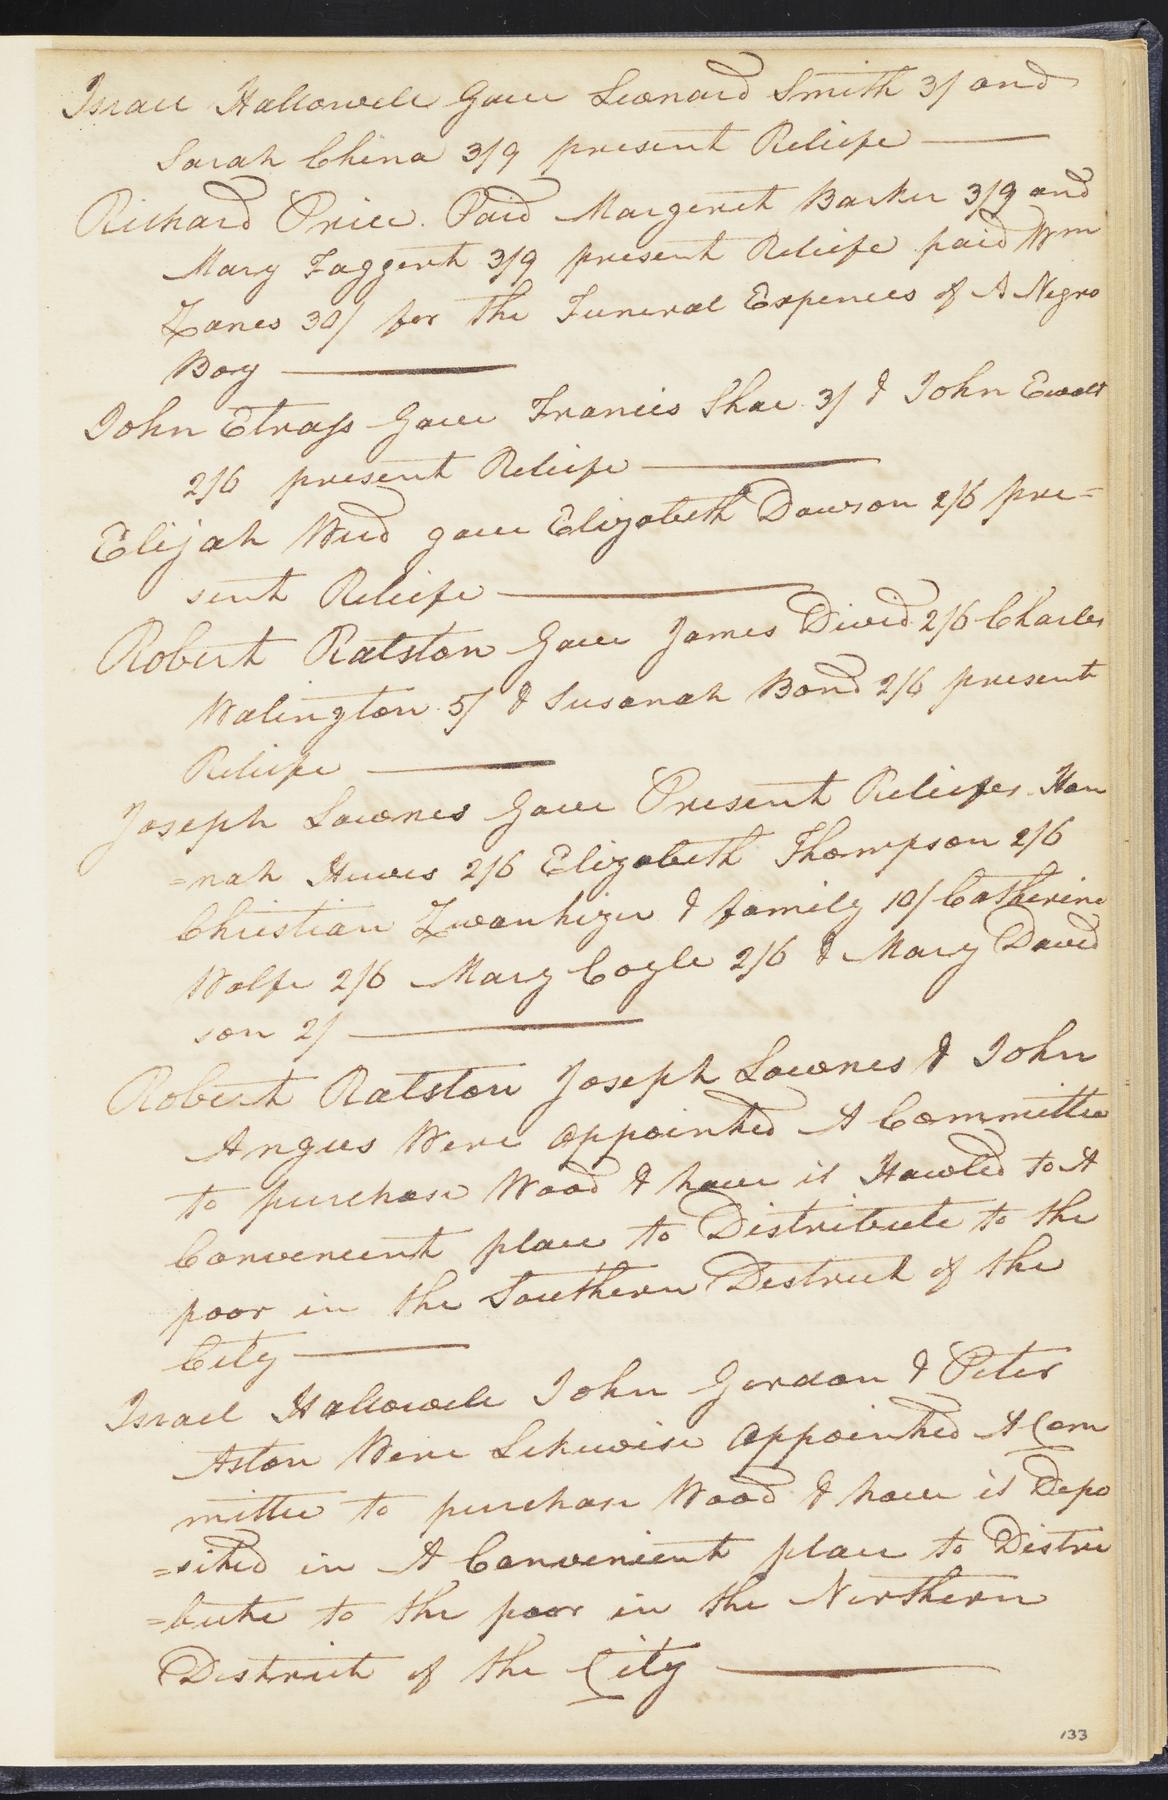 Israel Hallowell Gave Leonard Smith 3/ and
Sarah China 3/9 present Reliefe
Richard Price. Paid Margeret Barker 3/9 and
Mary Taggert 3/9 present Reliefe paid Wm
Zanes 30/ for the Funeral Expences of A Negro
Boy
John Strass Gave Francis Shae 3/ & John Ewalt
2/6 present Reliefe
Elijah Weed gave Elizabeth Dawson 2/6 pre=
sent Reliefe
Robert Ralston Gave James Divid 2/6 Charles
Walington 5/ & Susanah Bond 2/6 present
Reliefe
Joseph Lownes Gave Present Reliefes Han
=nah Hewes 2/6 Elizabeth Thompson 2/6
Christian Zwanhizer & family 10/ Catherine
Wolfe 2/6 Mary Cogle 2/6 & Mary David
son 2/
Robert Ralston Joseph Lownes & John
Angues Were appointed A Committee
to purchase Wood & have it Hawled to A
Convenient place to Distribute to the
poor in the Southern District of the
City
Israel Hallowell John Gordon & Peter
Aston Were Likewise appointed A Com
mittee to purchase Wood & have it Depo
=sited in A Convenient place to Distri
=bute to the poor in the Northern
District of the City
133